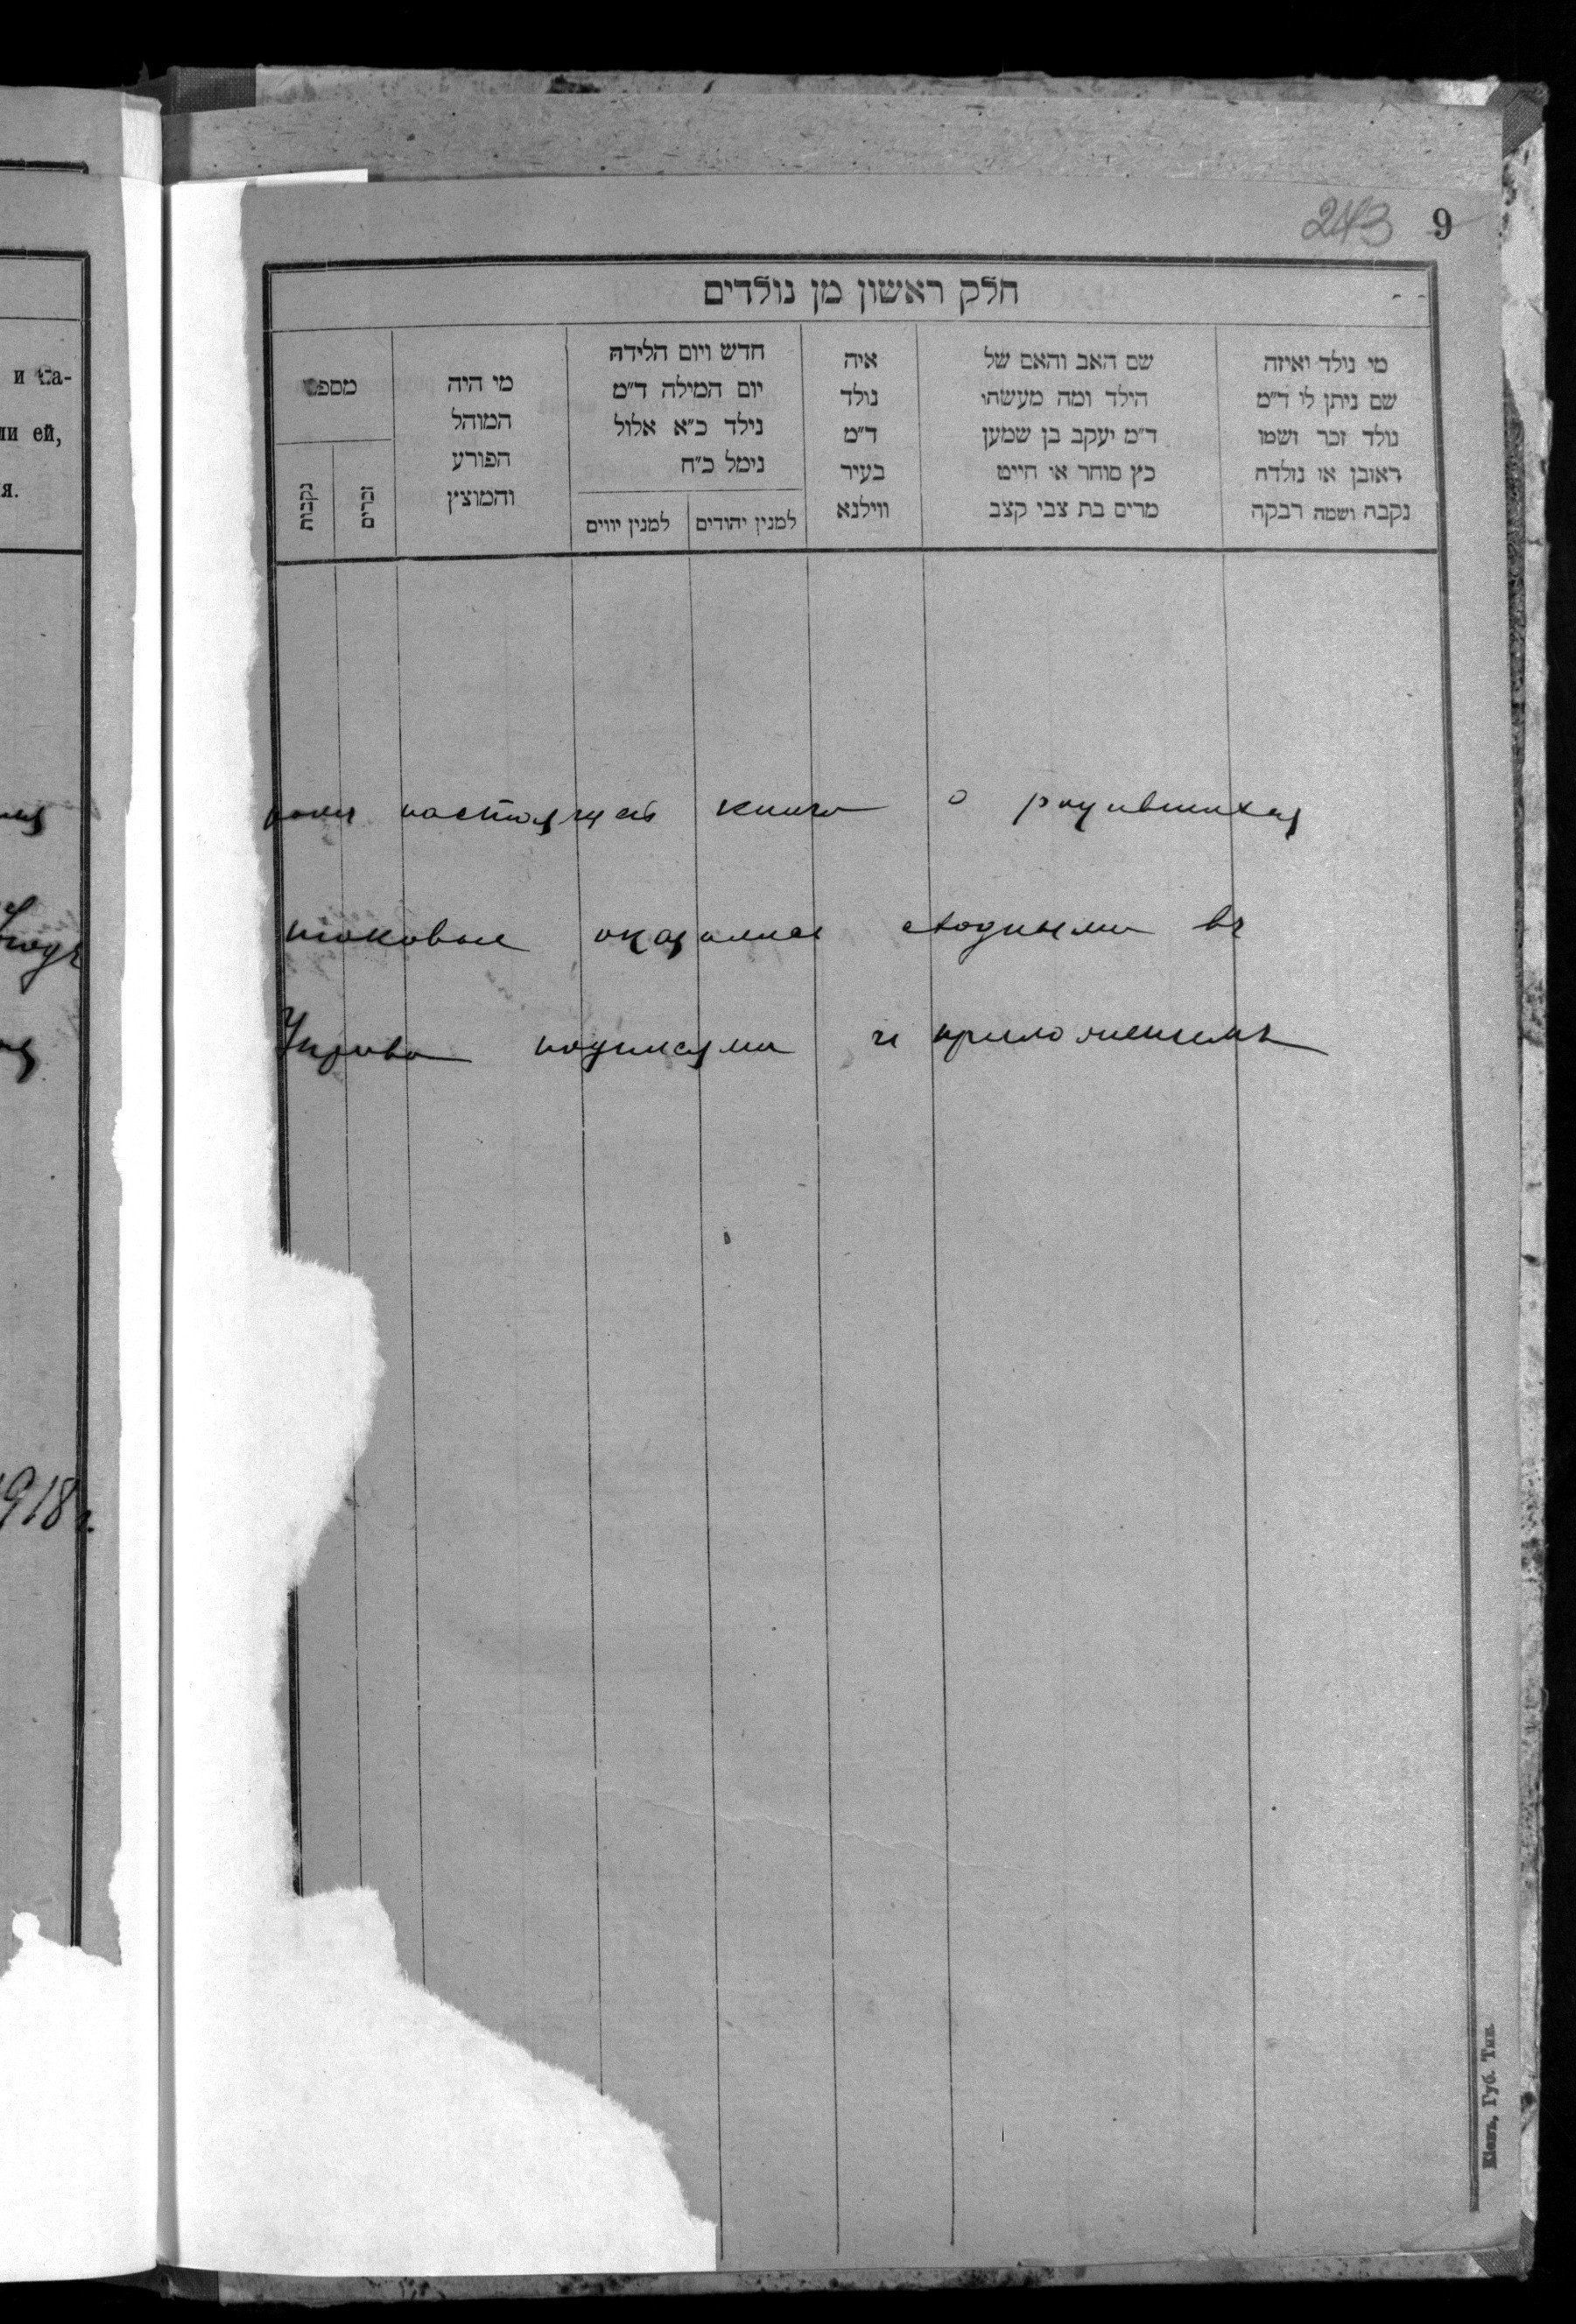 и за-
ли ей,
я.
1918 г.
243 9
חלק ראשון מן נולדים
מי נולד ואיזה
שם ניתן לו ד״מ
נולד זכר ושמו
ראובן או נולדה
נקבה ושמה רבקה
שם האב והאם של
הילד ומה מעשהו
ד״מ יעקב בן שמען
כץ סוחר או חייט
מרים בת צבי קצב
איה
נולד
ד״מ
בעיר
ווילנא
חדש ויום הלידה
יום המילה ד״מ
נילד כ״א אלול
נימל כ״ח
למנין יהודים
למנין יווים
מי היה
המוהל
הפורע
והמוצץ
מספר
זכרים
נקבות
настоящей книги о родившихся
таковые оказались сходными въ
Управа подписями и приложениемъ
Кіевъ, Губ. Тип.